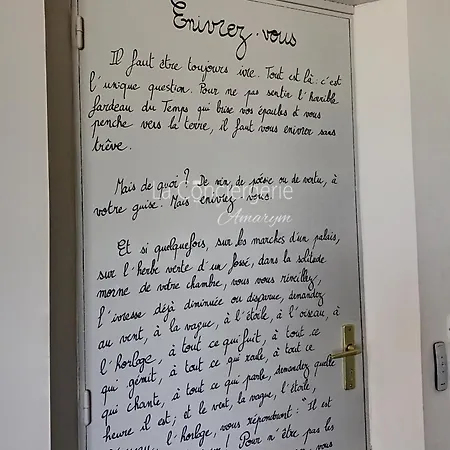 Enivrez-vous
Il faut être toujours ivre. Tout est là : c'est
l'unique question. Pour ne pas sentir l'horrible
fardeau du Temps qui brise vos épaules et vous
penche vers la terre, il faut vous enivrer sans
trêve.
Mais de quoi ? De vin, de poésie ou de vertu, à
votre guise. Mais enivrez-vous.
La Conciergerie
Amarym
Et si quelquefois, sur les marches d'un palais,
sur l'herbe verte d'un fossé, dans la solitude
morne de votre chambre, vous vous réveillez,
l'ivresse déjà diminuée ou disparue, demandez
au vent, à la vague, à l'étoile, à l'oiseau, à
l'horloge, à tout ce qui fuit, à tout ce
qui gémit, à tout ce qui roule, à tout ce
qui chante, à tout ce qui parle, demandez quelle
heure il est ; et le vent, la vague, l'étoile,
l'horloge, vous répondront : "Il est
! Pour n'être pas les